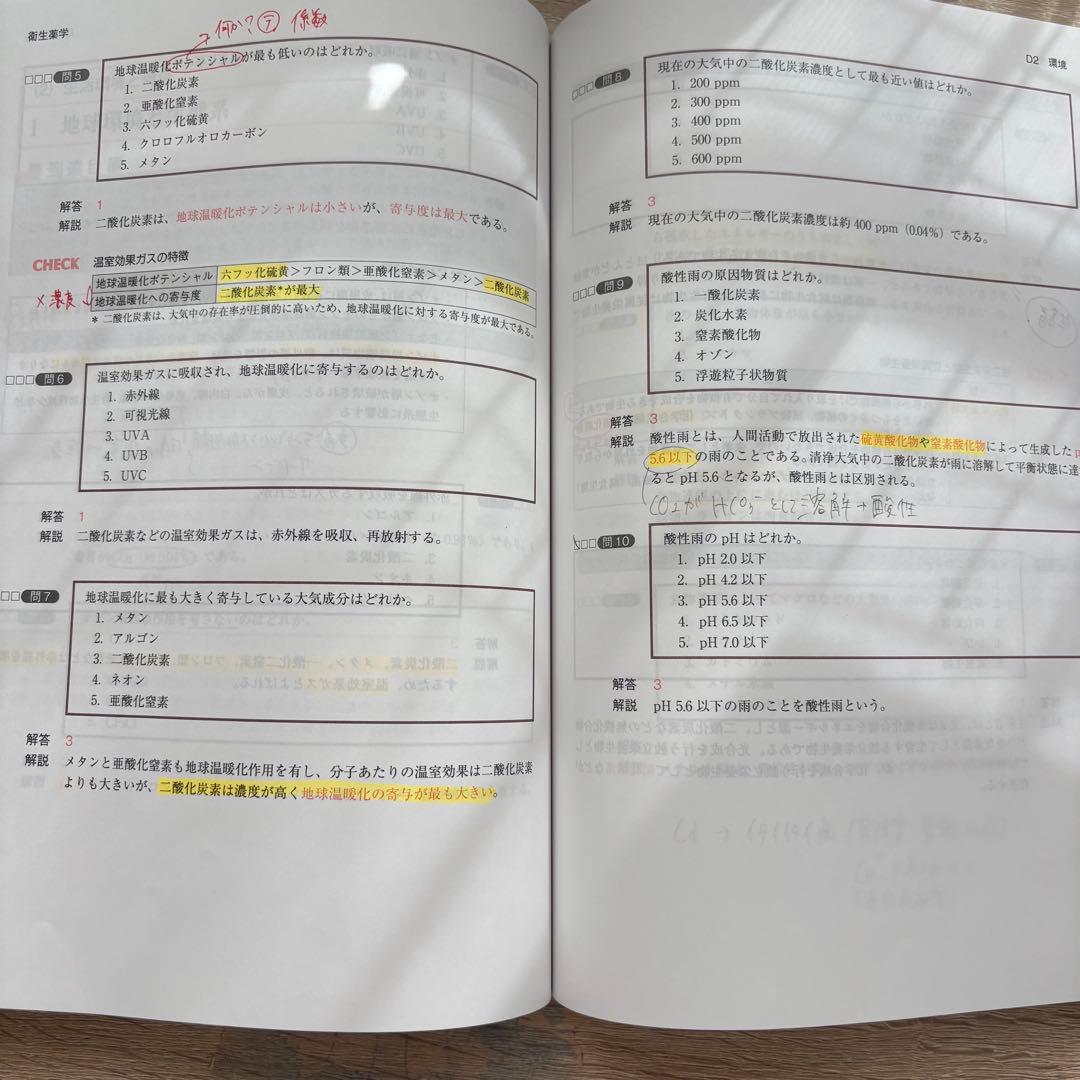 衛生薬学
何か? 係数
問5 地球温暖化ポテンシャルが最も低いのはどれか。
1. 二酸化炭素
2. 亜酸化窒素
3. 六フッ化硫黄
4. クロロフルオロカーボン
5. メタン
解答 1
解説 二酸化炭素は、地球温暖化ポテンシャルは小さいが、寄与度は最大である。
CHECK 温室効果ガスの特徴
地球温暖化ポテンシャル 六フッ化硫黄>フロン類>亜酸化窒素>メタン>二酸化炭素
×濃度 地球温暖化への寄与度 二酸化炭素*が最大
* 二酸化炭素は、大気中の存在率が圧倒的に高いため、地球温暖化に対する寄与度が最大である。
問6 温室効果ガスに吸収され、地球温暖化に寄与するのはどれか。
1. 赤外線
2. 可視光線
3. UVA
4. UVB
5. UVC
解答 1
解説 二酸化炭素などの温室効果ガスは、赤外線を吸収、再放射する。
問7 地球温暖化に最も大きく寄与している大気成分はどれか。
1. メタン
2. アルゴン
3. 二酸化炭素
4. ネオン
5. 亜酸化窒素
解答 3
解説 メタンと亜酸化窒素も地球温暖化作用を有し、分子あたりの温室効果は二酸化炭素
よりも大きいが、二酸化炭素は濃度が高く地球温暖化の寄与が最も大きい。
D2 環境
問8 現在の大気中の二酸化炭素濃度として最も近い値はどれか。
1. 200 ppm
2. 300 ppm
3. 400 ppm
4. 500 ppm
5. 600 ppm
解答 3
解説 現在の大気中の二酸化炭素濃度は約 400 ppm(0.04%)である。
問9 酸性雨の原因物質はどれか。
1. 一酸化炭素
2. 炭化水素
3. 窒素酸化物
4. オゾン
5. 浮遊粒子状物質
解答 3
解説 酸性雨とは、人間活動で放出された硫黄酸化物や窒素酸化物によって生成した p
5.6 以下の雨のことである。清浄大気中の二酸化炭素が雨に溶解して平衡状態に達
ると pH 5.6 となるが、酸性雨とは区別される。
CO₂が HCO₃⁻として溶解→酸性
問10 酸性雨の pH はどれか。
1. pH 2.0 以下
2. pH 4.2 以下
3. pH 5.6 以下
4. pH 6.5 以下
5. pH 7.0 以下
解答 3
解説 pH 5.6 以下の雨のことを酸性雨という。